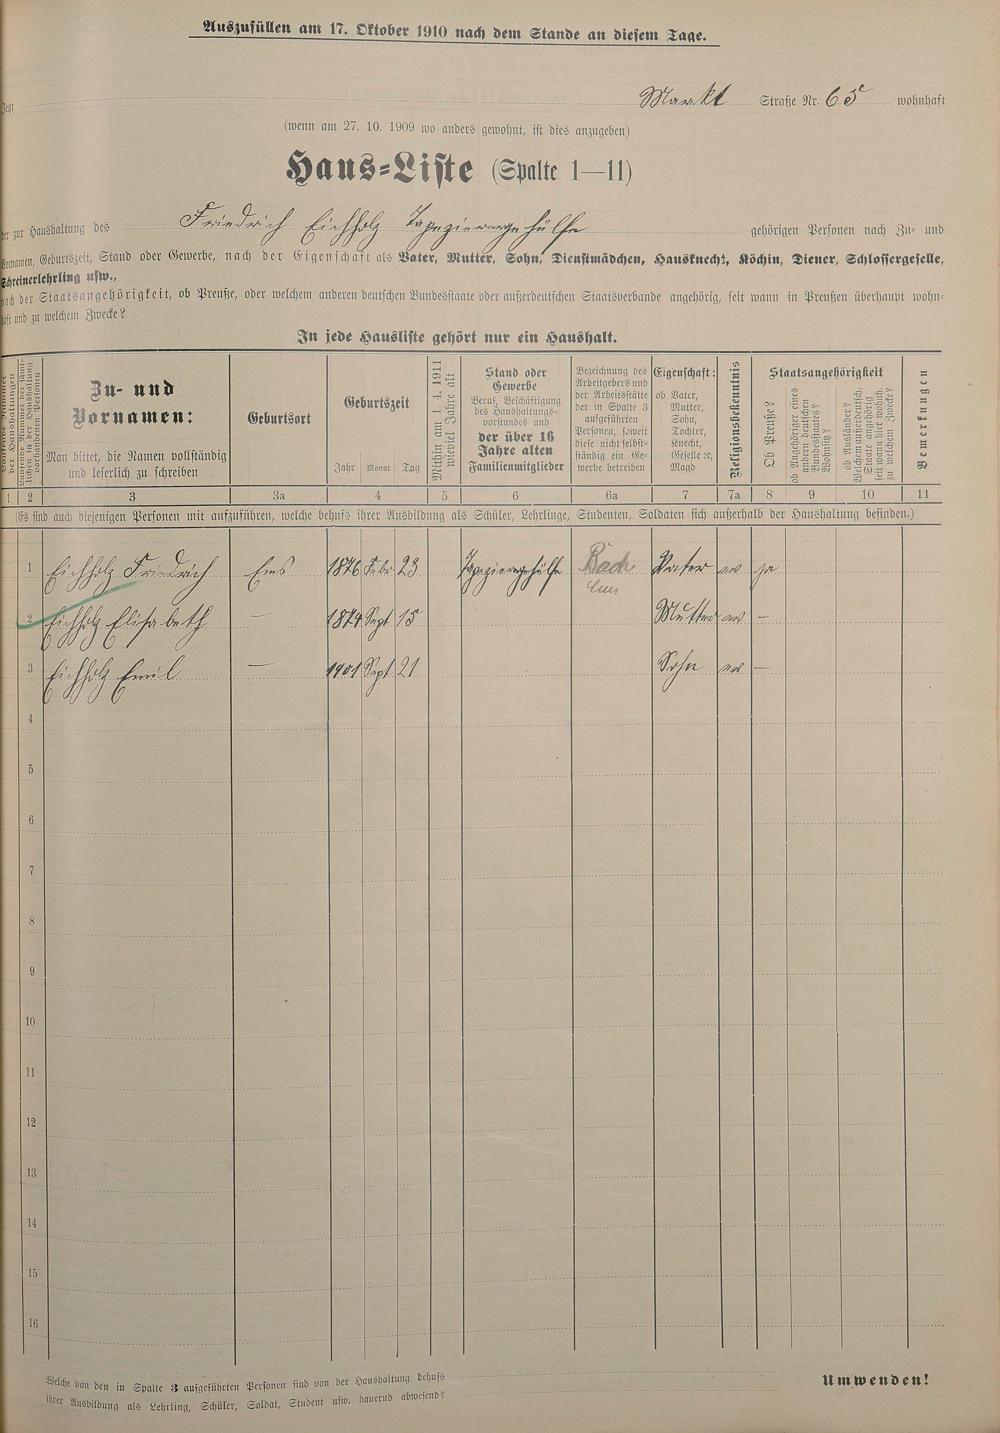 Auszufüllen am 17. Oktober 1910 nach dem Stande an diesem Tage.
Jetzt Markt Straße Nr. 65 wohnhaft
(wenn am 27. 10. 1909 wo anders gewohnt, ist dies anzugeben)
Haus=Liste (Spalte 1—11)
der zur Haushaltung des Friedrich Eichholz Tapezierergehülfe gehörigen Personen nach Zu- und
Vornamen, Geburtszeit, Stand oder Gewerbe, nach der Eigenschaft als Vater, Mutter, Sohn, Dienstmädchen, Hausknecht, Köchin, Diener, Schlossergeselle,
Schreinerlehrling usw.,
nach der Staatsangehörigkeit, ob Preuße, oder welchem anderen deutschen Bundesstaate oder außerdeutschen Staatsverbande angehörig, seit wann in Preußen überhaupt wohn-
haft und zu welchem Zwecke?
In jede Hausliste gehört nur ein Haushalt.
Laufende Nummer der Haushaltungen
Laufende Nummer der sämt-
lichen in der Haushaltung
vorhandenen Personen
Zu- und
Vornamen:
Man bittet, die Namen vollständig
und leserlich zu schreiben
Geburtsort
Geburtszeit
Jahr Monat Tag
Mithin am 1. 4. 1911
wieviel Jahre alt
Stand oder
Gewerbe
Beruf, Beschäftigung
des Haushaltungs-
vorstandes und
der über 16
Jahre alten
Familienmitglieder
Bezeichnung des
Arbeitgebers und
der Arbeitsstätte
der in Spalte 3
aufgeführten
Personen, soweit
diese nicht selbst-
ständig ein Ge-
werbe betreiben
Eigenschaft:
ob Vater,
Mutter,
Sohn,
Tochter,
Knecht,
Geselle ec,
Magd
Religionsbekenntnis
Staatsangehörigkeit
Ob Preuße?
ob Angehöriger eines
andern deutschen
Bundesstaates?
Wohnsitz?
ob Ausländer?
Welchem außerdeutsch.
Staate angehörig
seit wann hier wohnh.
zu welchem Zwecke?
Bemerkungen
1 2 3 3a 4 5 6 6a 7 7a 8 9 10 11
(Es sind auch diejenigen Personen mit aufzuführen, welche behufs ihrer Ausbildung als Schüler, Lehrlinge, Studenten, Soldaten sich außerhalb der Haushaltung befinden.)
1 Eichholz Friedrich Ems 1876 Febr 23 Tapezierergehülfe Bach Ems Vater ev ja
2 Eichholz Elisabeth — 1874 Sept 15 Mutter ev —
3 Eichholz Emil — 1901 Sept 21 Sohn ev —
4
5
6
7
8
9
10
11
12
13
14
15
16
Welche von den in Spalte 3 aufgeführten Personen sind von der Haushaltung behufs
ihrer Ausbildung als Lehrling, Schüler, Soldat, Student usw. dauernd abwesend?
Umwenden!